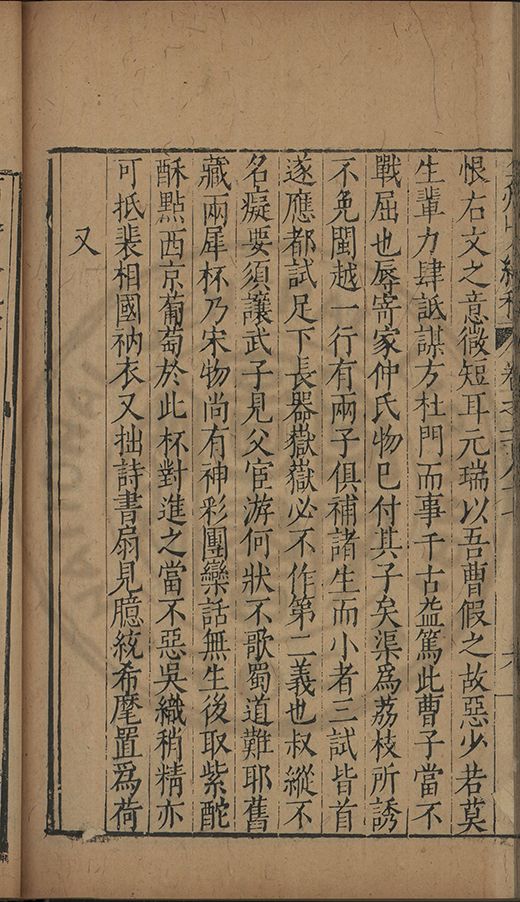 恨右文之意微短耳元瑞以吾曹假之故惡少若莫
生輩力肆詆謀方杜門而事千古益篤此曹子當不
戰屈也辱寄家仲氏物已付其子矣渠為荔枝所誘
不免閩越一行有兩子俱補諸生而小者三試皆首
遂應都試足下長器嶽嶽必不作第二義也叔縱不
名癡要須讓武子見父宦游何狀不歌蜀道難耶舊
藏兩犀杯乃宋物尚有神彩團欒話無生後取紫酡
酥點西京葡萄於此杯對進之當不惡吳織稍精亦
可抵裴相國衲衣又拙詩書扇見臆統希麾置為荷
又